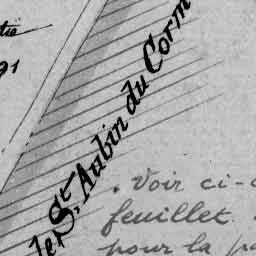 91
de St. Aubin du Corm
. Voir ci-
feuillet
pour la